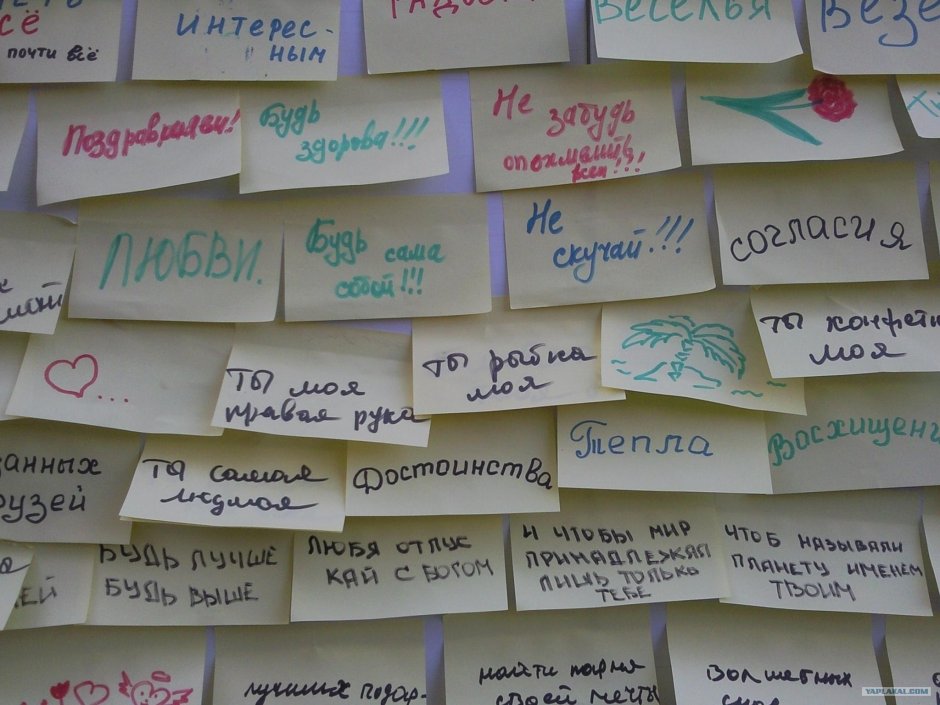 сё
почти всё
Интерес-
ным
Веселья
Везе
Поздравляем!
Будь
здорова!!!
Не
забудь
опохмелить
всех!!!
ЛЮБВИ.
Будь сама
собой!!!
Не
скучай!!!
согласия
...
ты моя
правая рука
ты рыбка
моя
ты конфетк
моя
данных
рузей
ты самая
людмая
Достоинства
Тепла
Восхищени
БУДЬ ЛУЧШЕ
БУДЬ ВЫШЕ
ЛЮБЯ ОТПУС
КАЙ С БОГОМ
И ЧТОБЫ МИР
ПРИНАДЛЕЖАЛ
ЛИШЬ ТОЛЬКО
ТЕБЕ
ЧТОБ НАЗЫВАЛИ
ПЛАНЕТУ ИМЕНЕМ
ТВОИМ
ЕЙ
лучших подар-
найти парня
своей мечты
волшебных
YAPLAKAL.COM